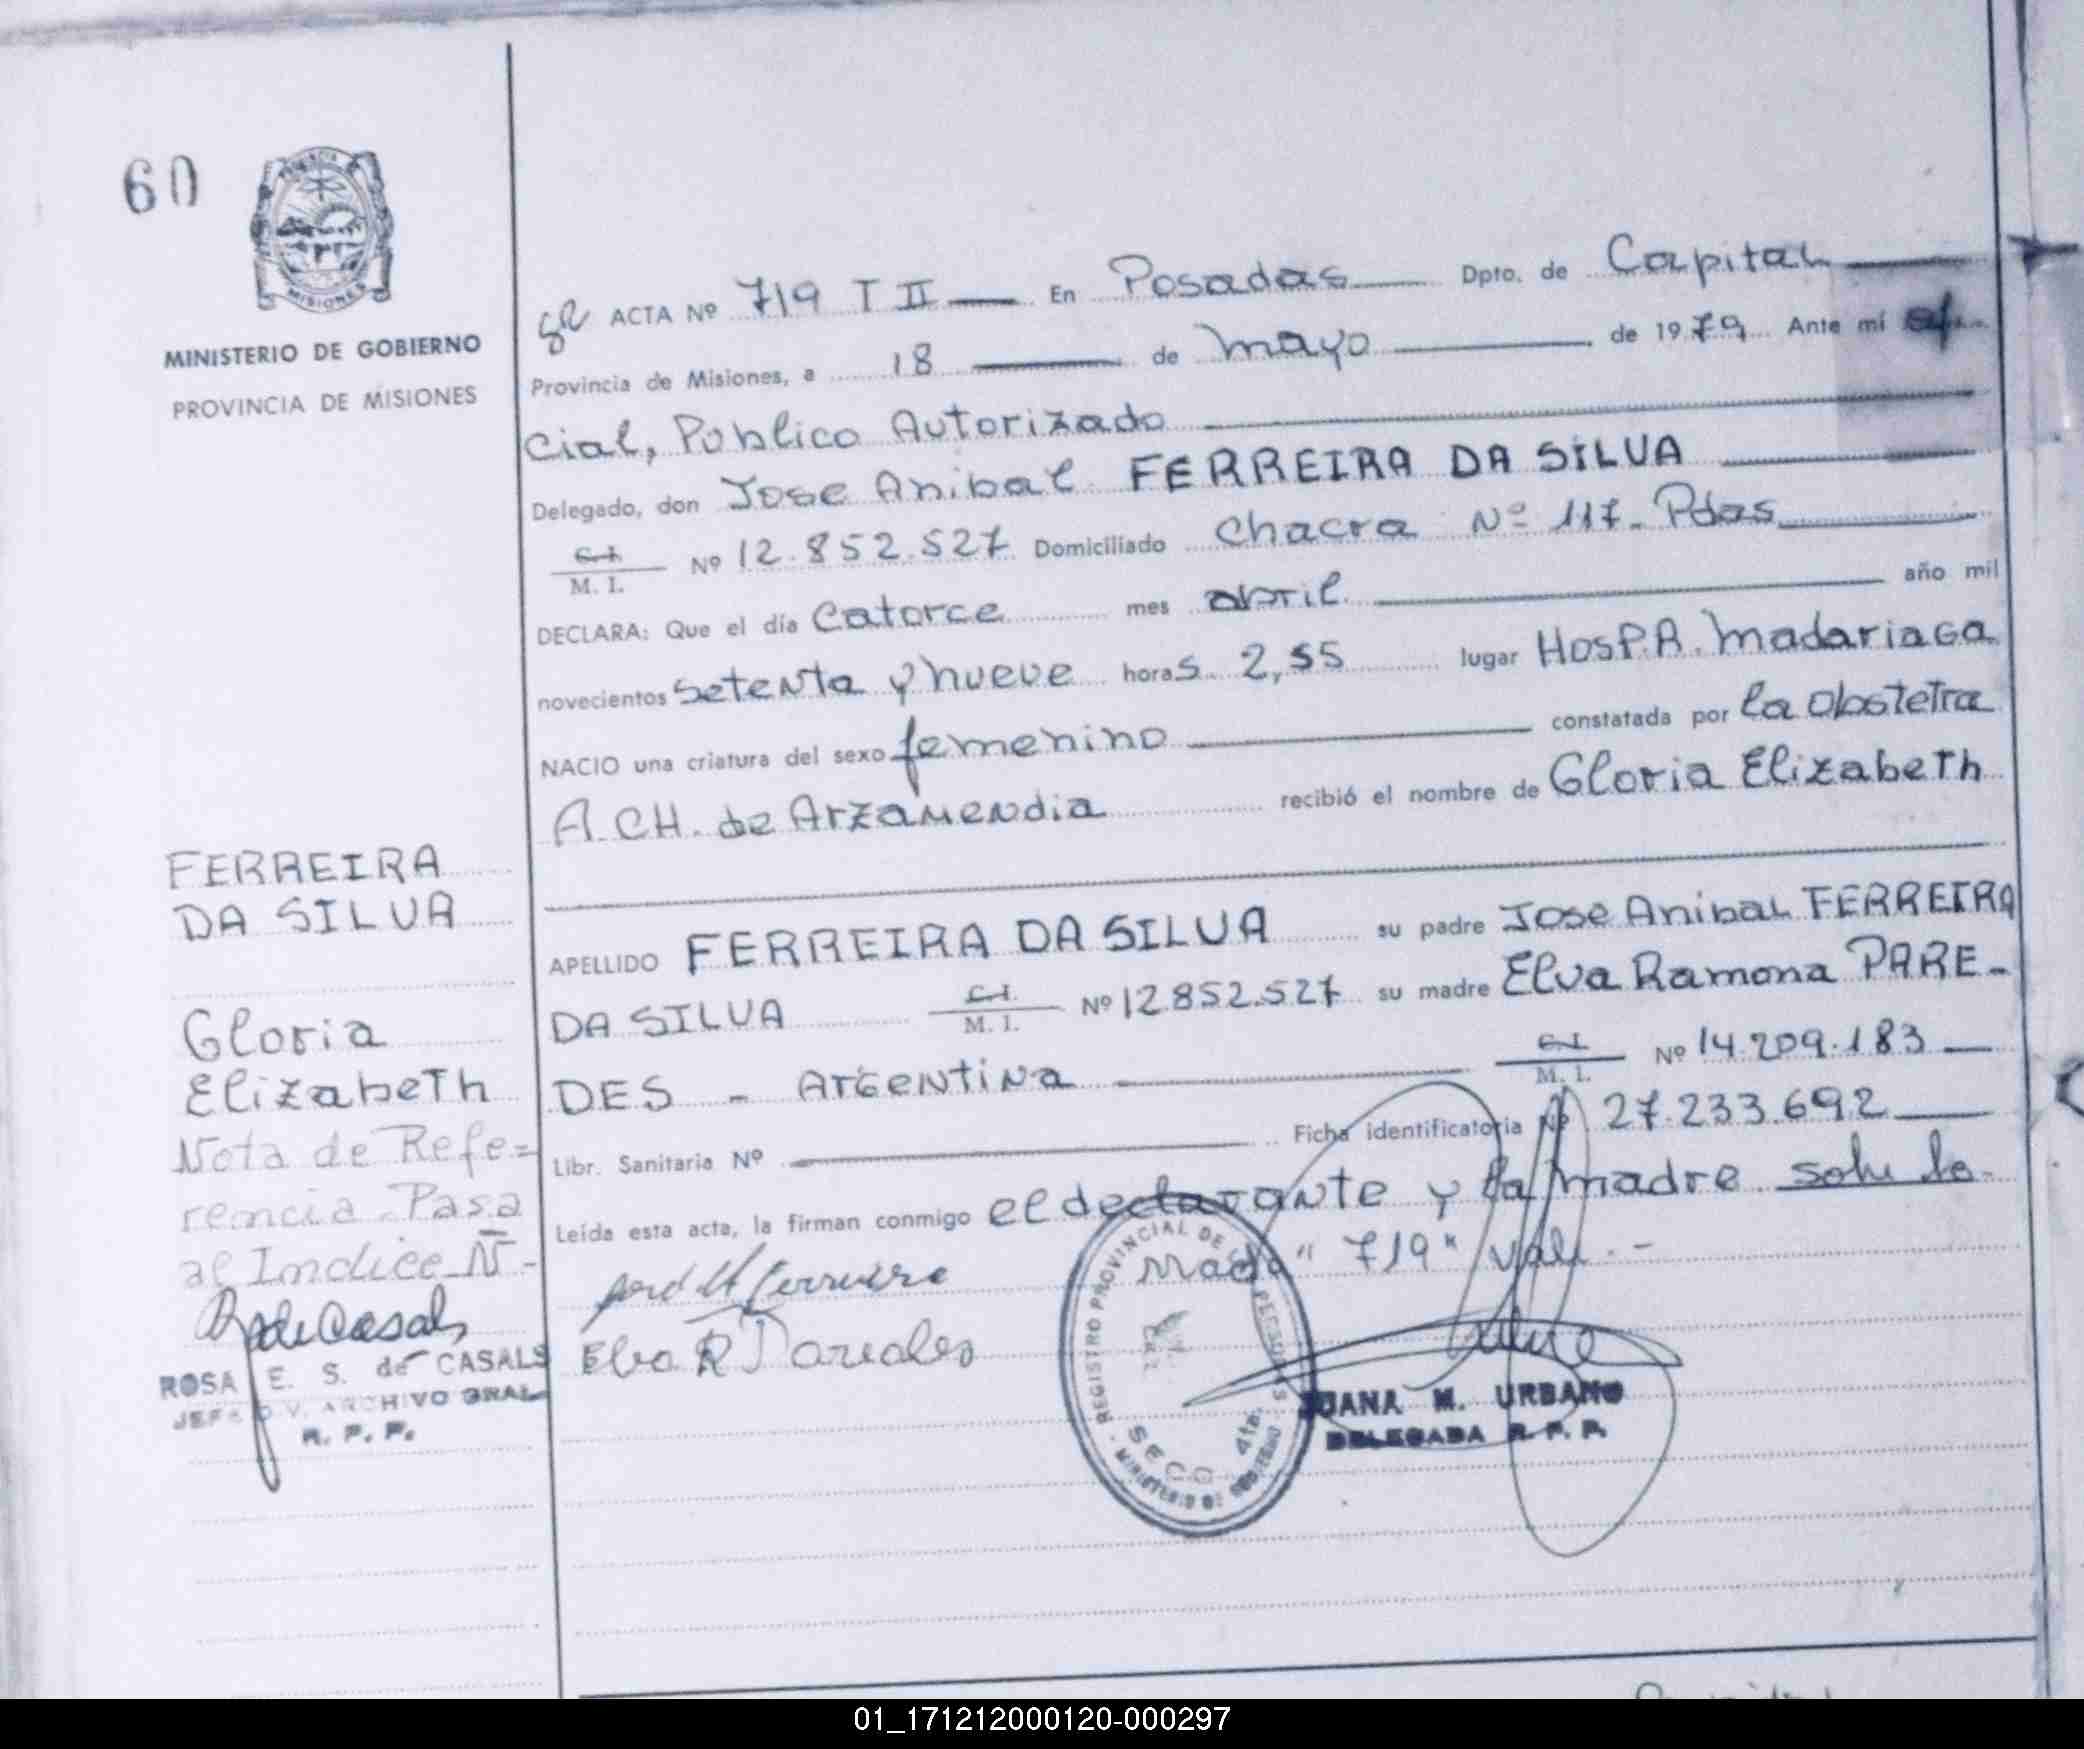 60
PROVINCIA DE
MISIONES
MINISTERIO DE GOBIERNO
PROVINCIA DE MISIONES
FERREIRA
DA SILVA
Gloria
Elizabeth
Nota de Refe=
rencia Pasa
al Indice N̄-
ROSA E. S. de CASALS
JEFE DIV. ARCHIVO GRAL
R. P. P.
ACTA Nº 719 T II — En Posadas Dpto. de Capital
Provincia de Misiones, a 18 de mayo de 1979 Ante mi ofi
cial, Público Autorizado
Delegado, don Jose Anibal FERREIRA DA SILVA
C.I. M. I. Nº 12.852.527 Domiciliado Chacra Nº 117- Pdas
DECLARA: Que el día Catorce mes abril año mil
novecientos setenta y nueve horas 2,55 lugar HosP.R. Madariaga
NACIO una criatura del sexo femenino constatada por la obstetra
A. CH. de Arzamendia recibió el nombre de Gloria Elizabeth
APELLIDO FERREIRA DA SILVA su padre Jose Anibal FERREIRA
DA SILVA C.I. M. I. Nº 12852.527 su madre Elva Ramona PARE-
DES - Argentina C.I. M. I. Nº 14.209.183
Libr. Sanitaria Nº Ficha identificatoria Nº 27.233.692
Leída esta acta, la firman conmigo el declarante y la madre
"719" Vale.-
Elva R Paredes
REGISTRO PROVINCIAL DE LAS PERSONAS
SECC 4ta.
MINISTERIO DE GOBIERNO
JUANA M. URBANO
DELEGADA R. P. P.
01_171212000120-000297